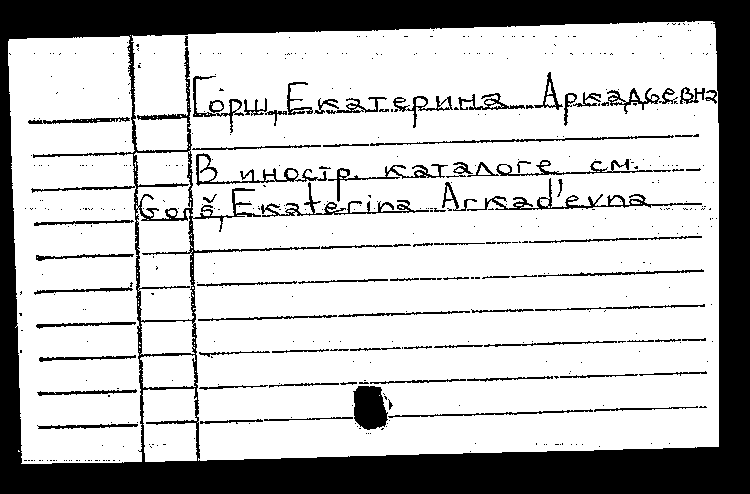 Горш, Екатерина Аркадьевна
В иностр. каталоге см.
Gorš, Ekaterina Arkad'evna